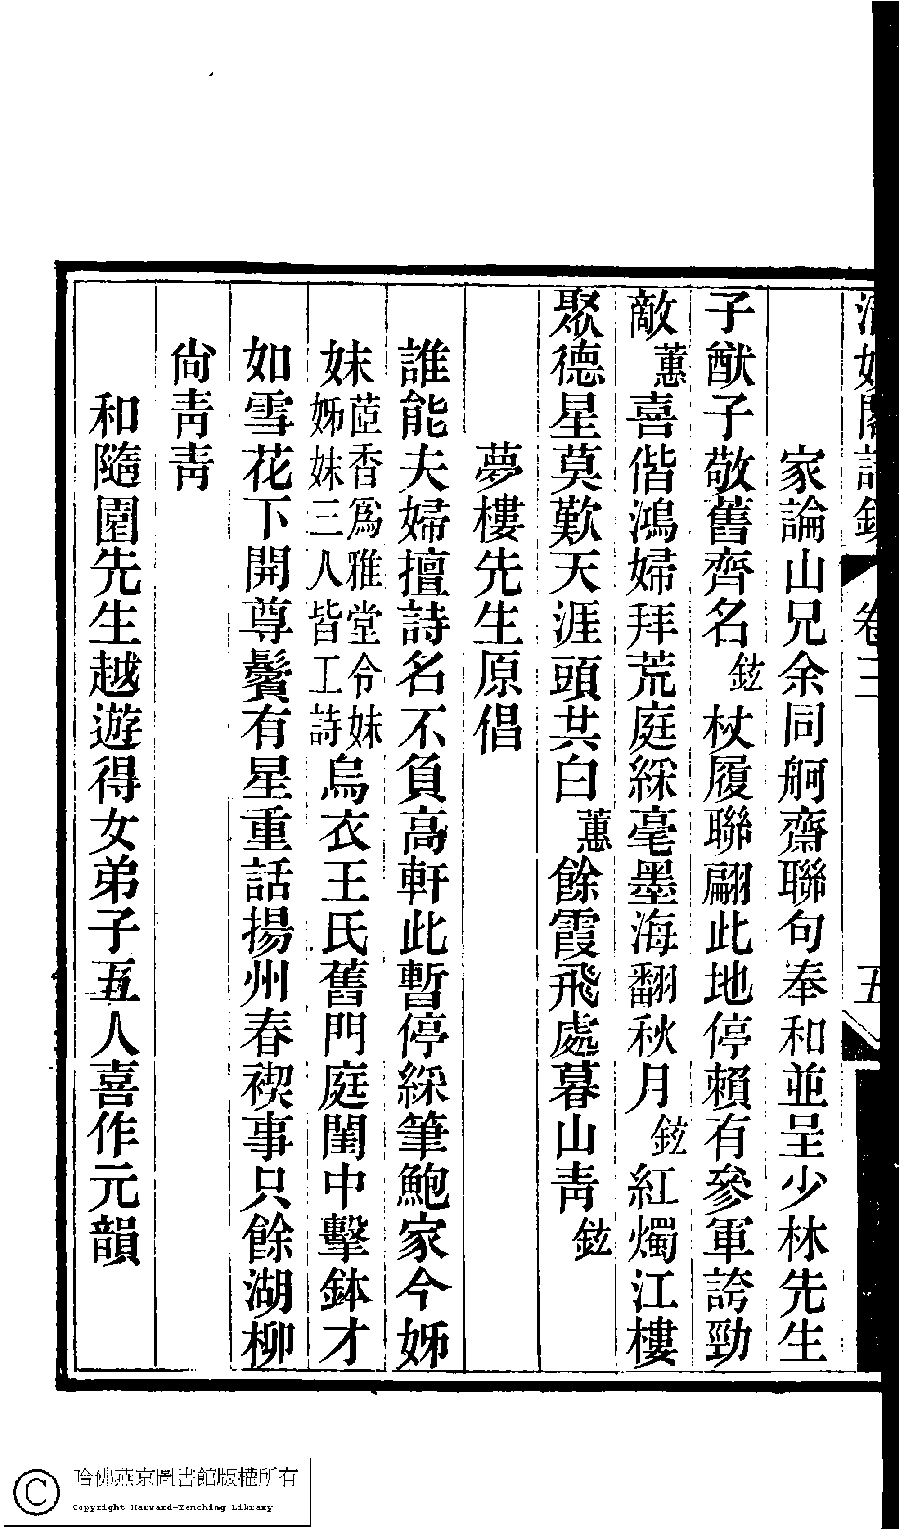 清娛閣詩鈔 卷三 五
家論山兄余同舸齋聯句奉和並呈少林先生
子猷子敬舊齊名鉉杖履聯翩此地停賴有參軍誇勁
敵蕙喜偕鴻婦拜荒庭綵毫墨海翻秋月鉉紅燭江樓
聚德星莫歎天涯頭共白蕙餘霞飛處暮山靑鉉
夢樓先生原倡
誰能夫婦擅詩名不負高軒此暫停綵筆鮑家今姊
妹茝香爲雅堂令妹姊妹三人皆工詩烏衣王氏舊門庭閨中擊鉢才
如雪花下開尊鬢有星重話揚州春禊事只餘湖柳
尙靑靑
和隨園先生越遊得女弟子五人喜作元韻
© 哈佛燕京圖書館版權所有
Copyright Harvard-Yenching Library